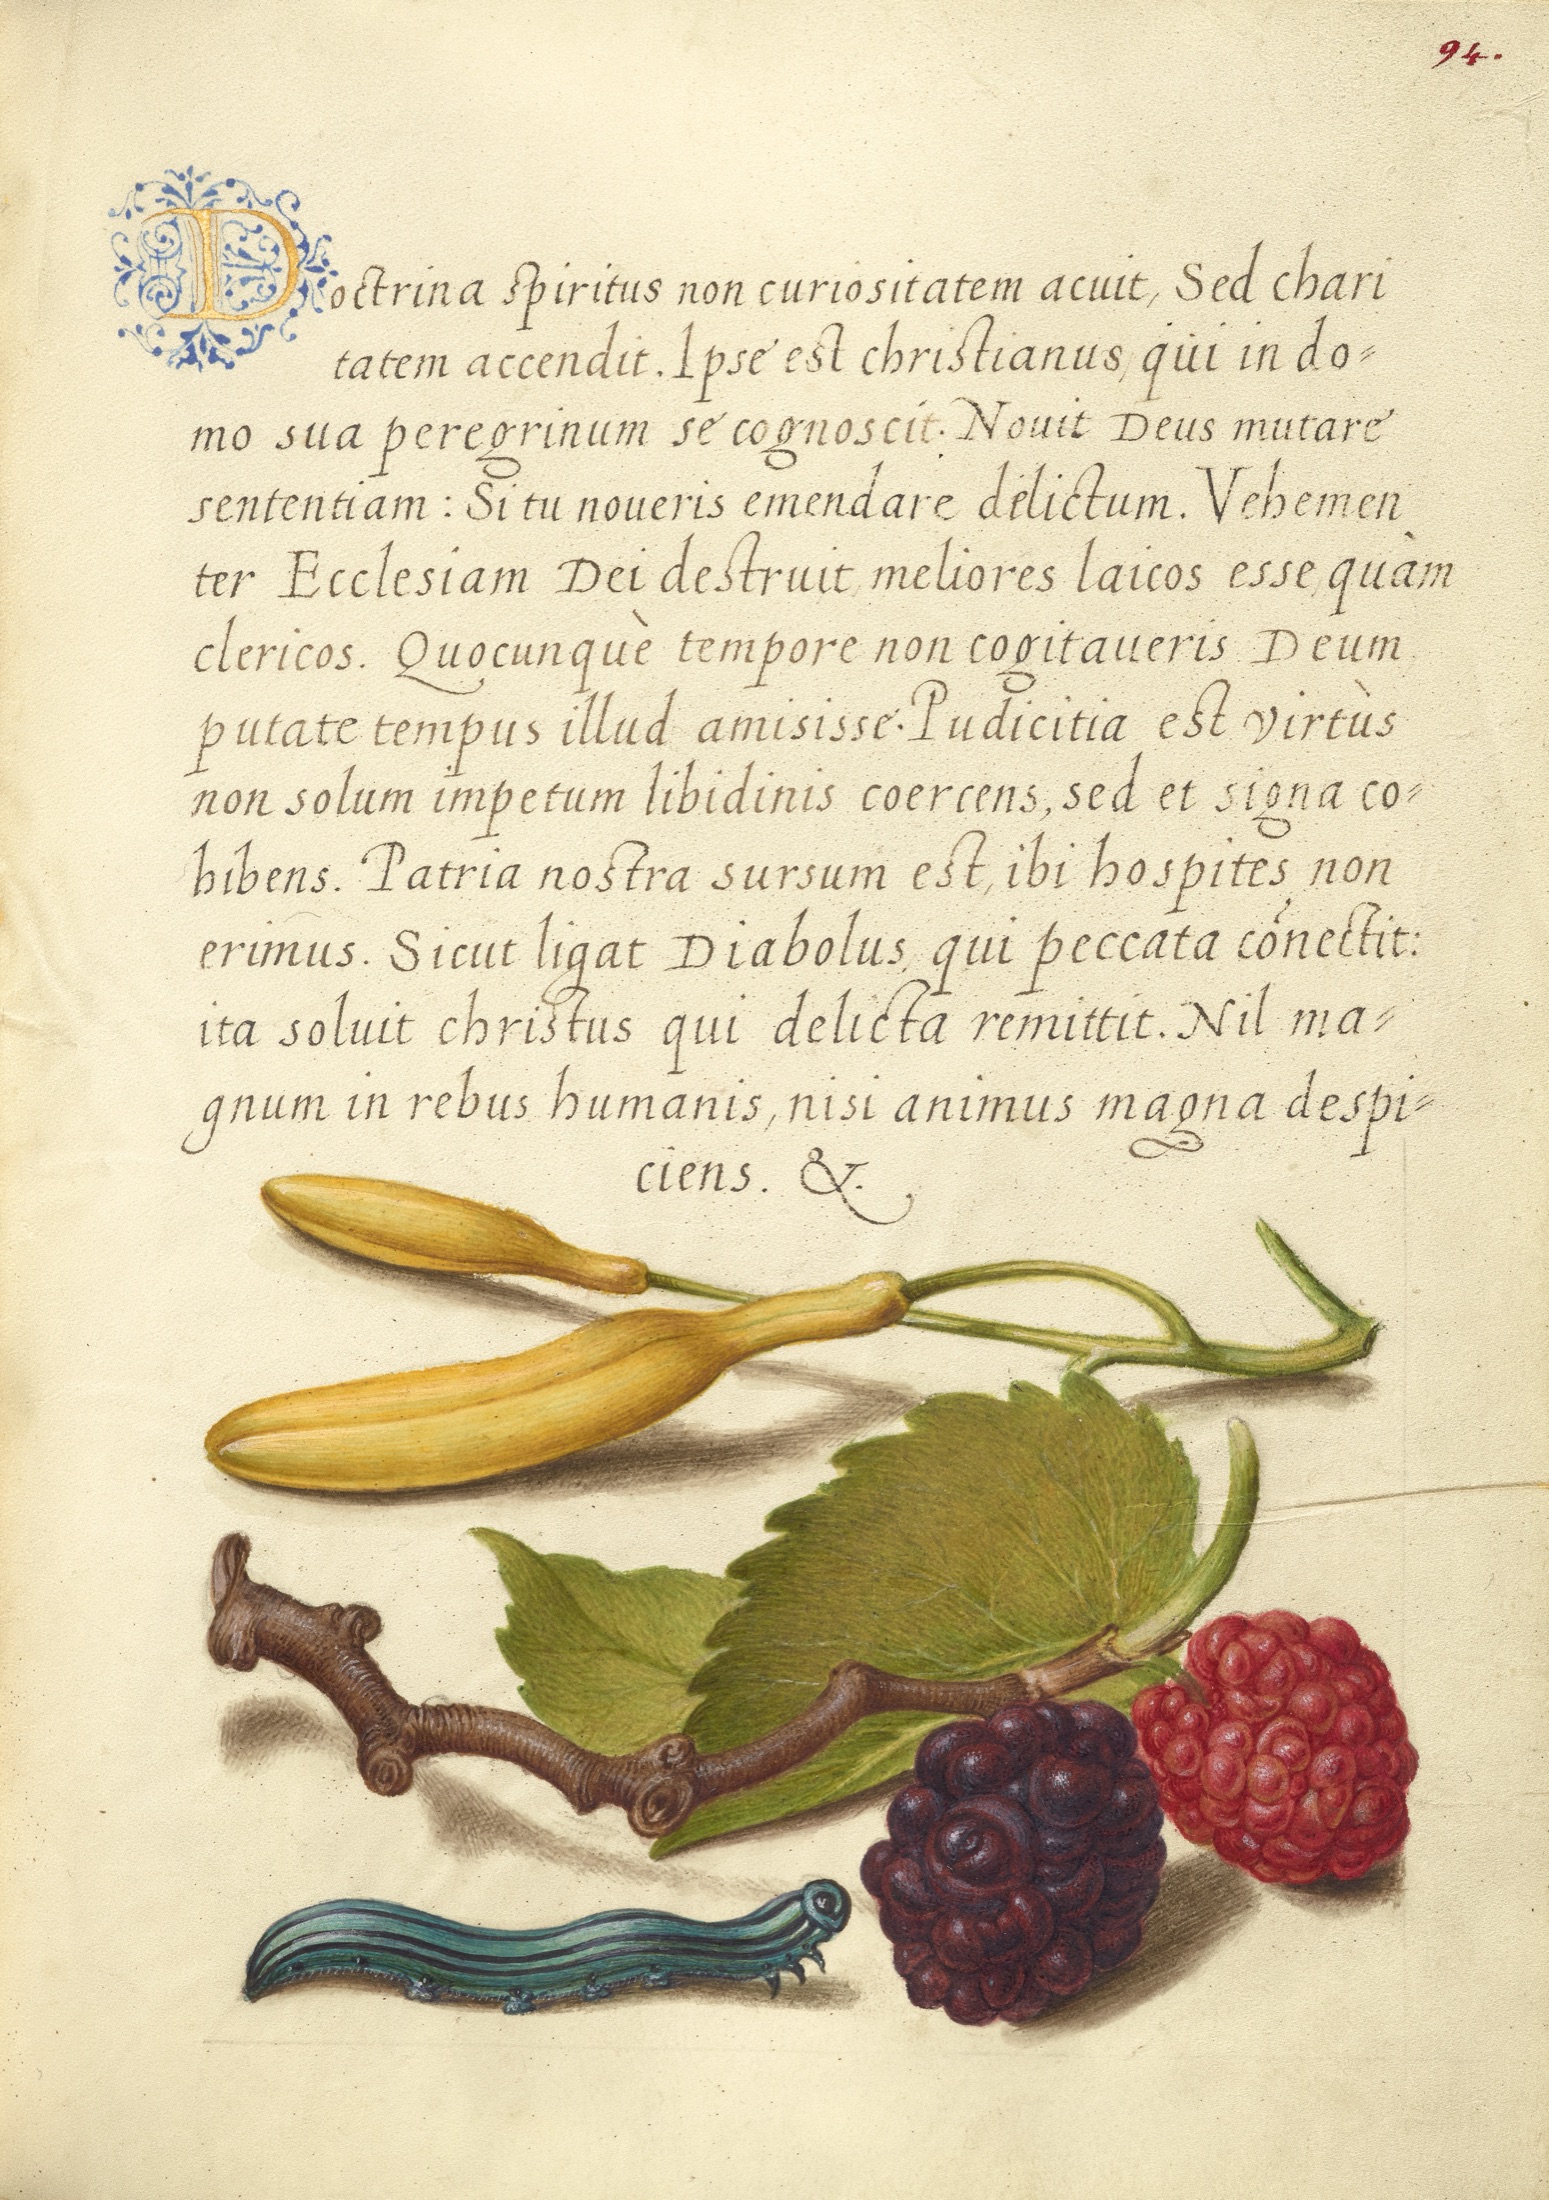 94.
Doctrina spiritus non curiositatem acuit, Sed chari
tatem accendit. Ipse est christianus, qui in do=
mo sua peregrinum se cognoscit. Nouit Deus mutare
sententiam: Si tu noueris emendare delictum. Vehemen
ter Ecclesiam Dei destruit, meliores laicos esse, quàm
clericos. Quocunquè tempore non cogitaueris Deum
putate tempus illud amisisse. Pudicitia est virtùs
non solum impetum libidinis coercens, sed et signa co=
hibens. Patria nostra sursum est, ibi hospites non
erimus. Sicut ligat Diabolus, qui peccata cónectit:
ita soluit christus qui delicta remittit. Nil ma=
gnum in rebus humanis, nisi animus magna despi=
ciens. &.